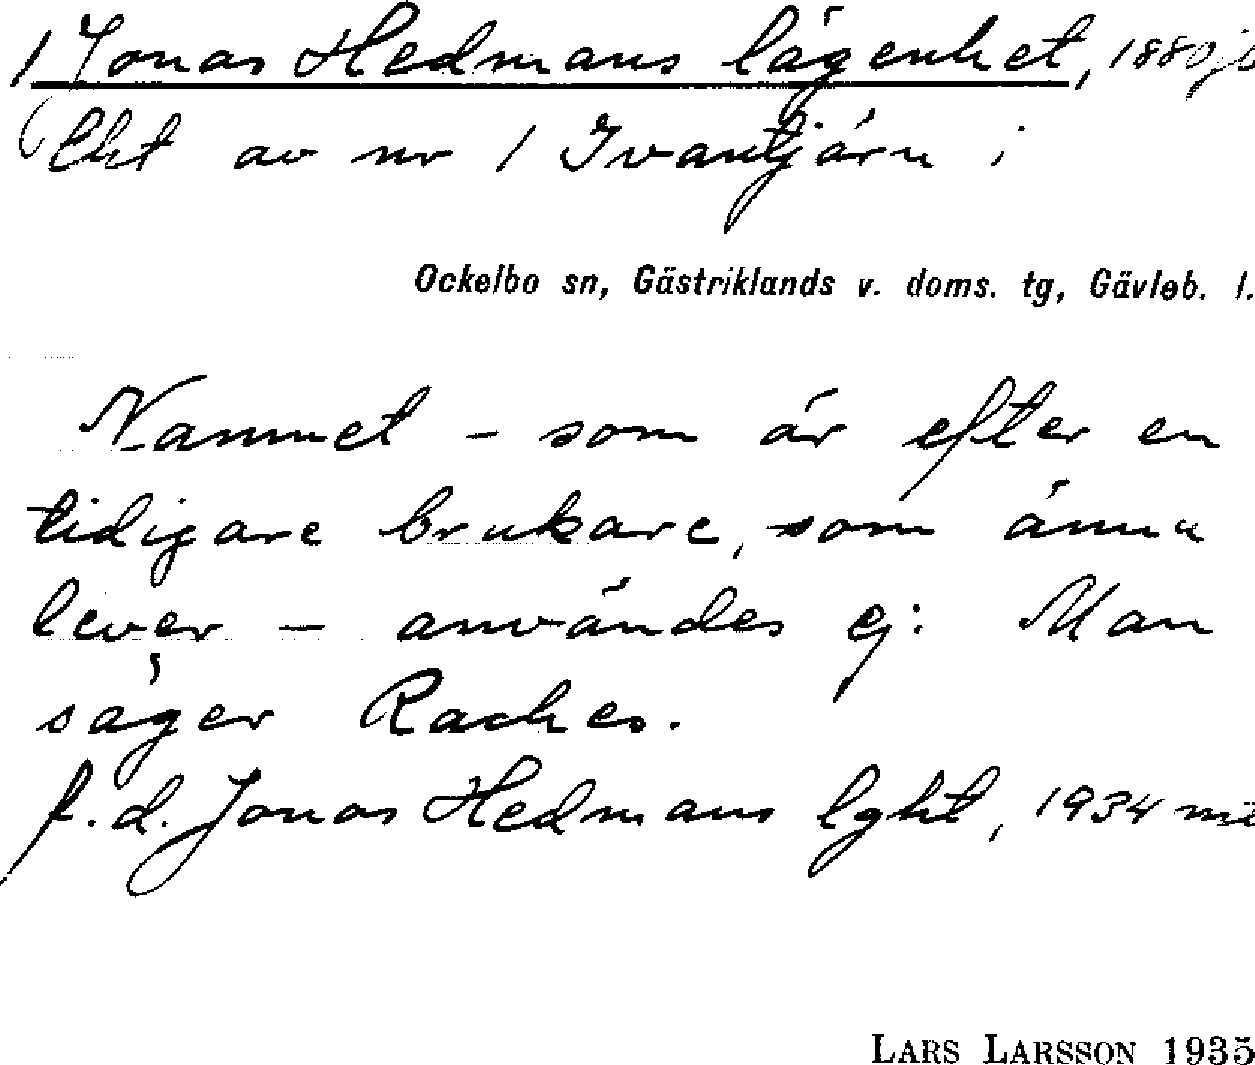 1 Jonas Hedmans lägenhet, 1880 jb
Lht av nr 1 Ivantjärn i
Ockelbo sn, Gästriklands v. doms. tg, Gävleb. l.
Namnet – som är efter en
tidigare brukare, som ännu
lever – användes ej: Man
säger Raches.
f.d. Jonas Hedmans lght, 1934 ma
LARS LARSSON 1935